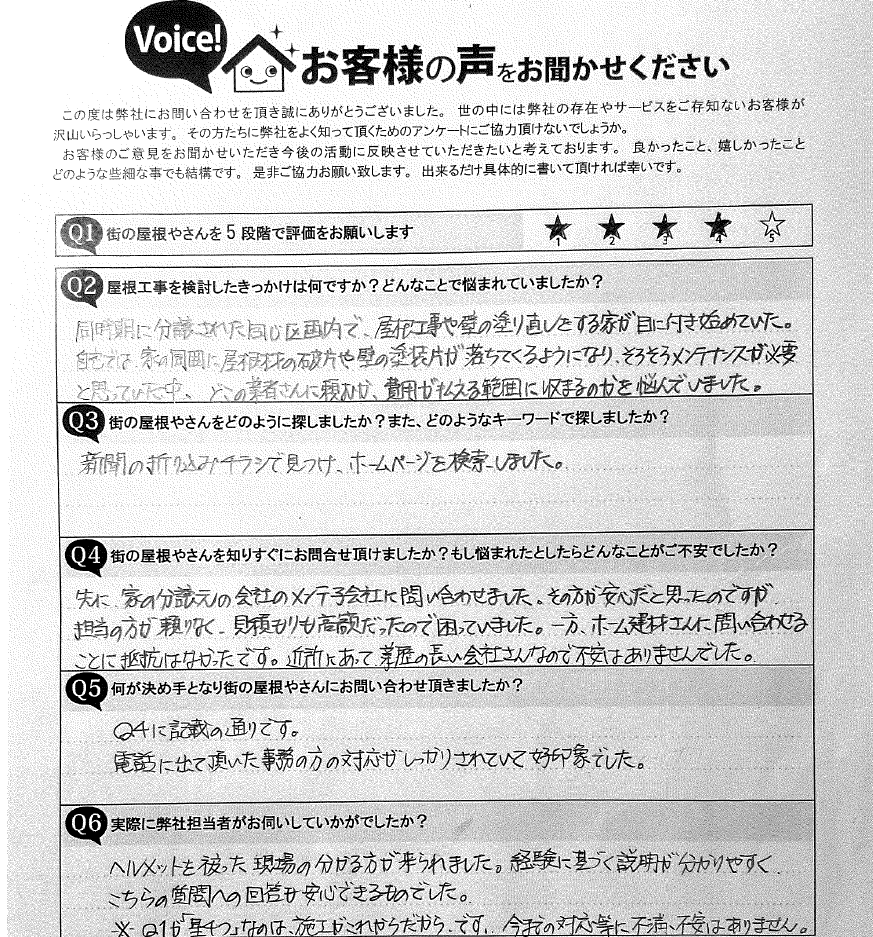 Voice!
お客様の声をお聞かせください
この度は弊社にお問い合わせを頂き誠にありがとうございました。 世の中には弊社の存在やサービスをご存知ないお客様が
沢山いらっしゃいます。 その方たちに弊社をよく知って頂くためのアンケートにご協力頂けないでしょうか。
お客様のご意見をお聞かせいただき今後の活動に反映させていただきたいと考えております。 良かったこと、嬉しかったこと
どのような些細な事でも結構です。 是非ご協力お願い致します。 出来るだけ具体的に書いて頂ければ幸いです。
Q1 街の屋根やさんを5段階で評価をお願いします 1 2 3 4 5
Q2 屋根工事を検討したきっかけは何ですか？どんなことで悩まれていましたか？
同時期に分譲された同じ区画内で、屋根工事や壁の塗り直しをする家が目に付き始めていた。
自宅でも、家の周囲に屋根材の破片や壁の塗装片が落ちてくるようになり、そろそろメンテナンスが必要
と思っていた中、どこの業者さんに頼むか、費用が払える範囲に収まるのかを悩んでいました。
Q3 街の屋根やさんをどのように探しましたか？また、どのようなキーワードで探しましたか？
新聞の折り込みチラシで見つけ、ホームページを検索しました。
Q4 街の屋根やさんを知りすぐにお問合せ頂けましたか？もし悩まれたとしたらどんなことがご不安でしたか？
先に、家の分譲元の会社のメンテ子会社に問い合わせました。その方が安心だと思ったのですが、
担当の方が頼りなく、見積もりも高額だったので困っていました。一方、ホーム建材さんに問い合わせる
ことに抵抗はなかったです。近所にあって業歴の長い会社さんなので不安はありませんでした。
Q5 何が決め手となり街の屋根やさんにお問い合わせ頂きましたか？
Q4に記載の通りです。
電話に出て頂いた事務の方の対応がしっかりされていて好印象でした。
Q6 実際に弊社担当者がお伺いしていかがでしたか？
ヘルメットを被った現場の分かる方が来られました。経験に基づく説明が分かりやすく、
こちらの質問への回答も安心できるものでした。
※ Q1が「星4つ」なのは、施工がこれからだから、です。今までの対応等に不満、不安はありません。